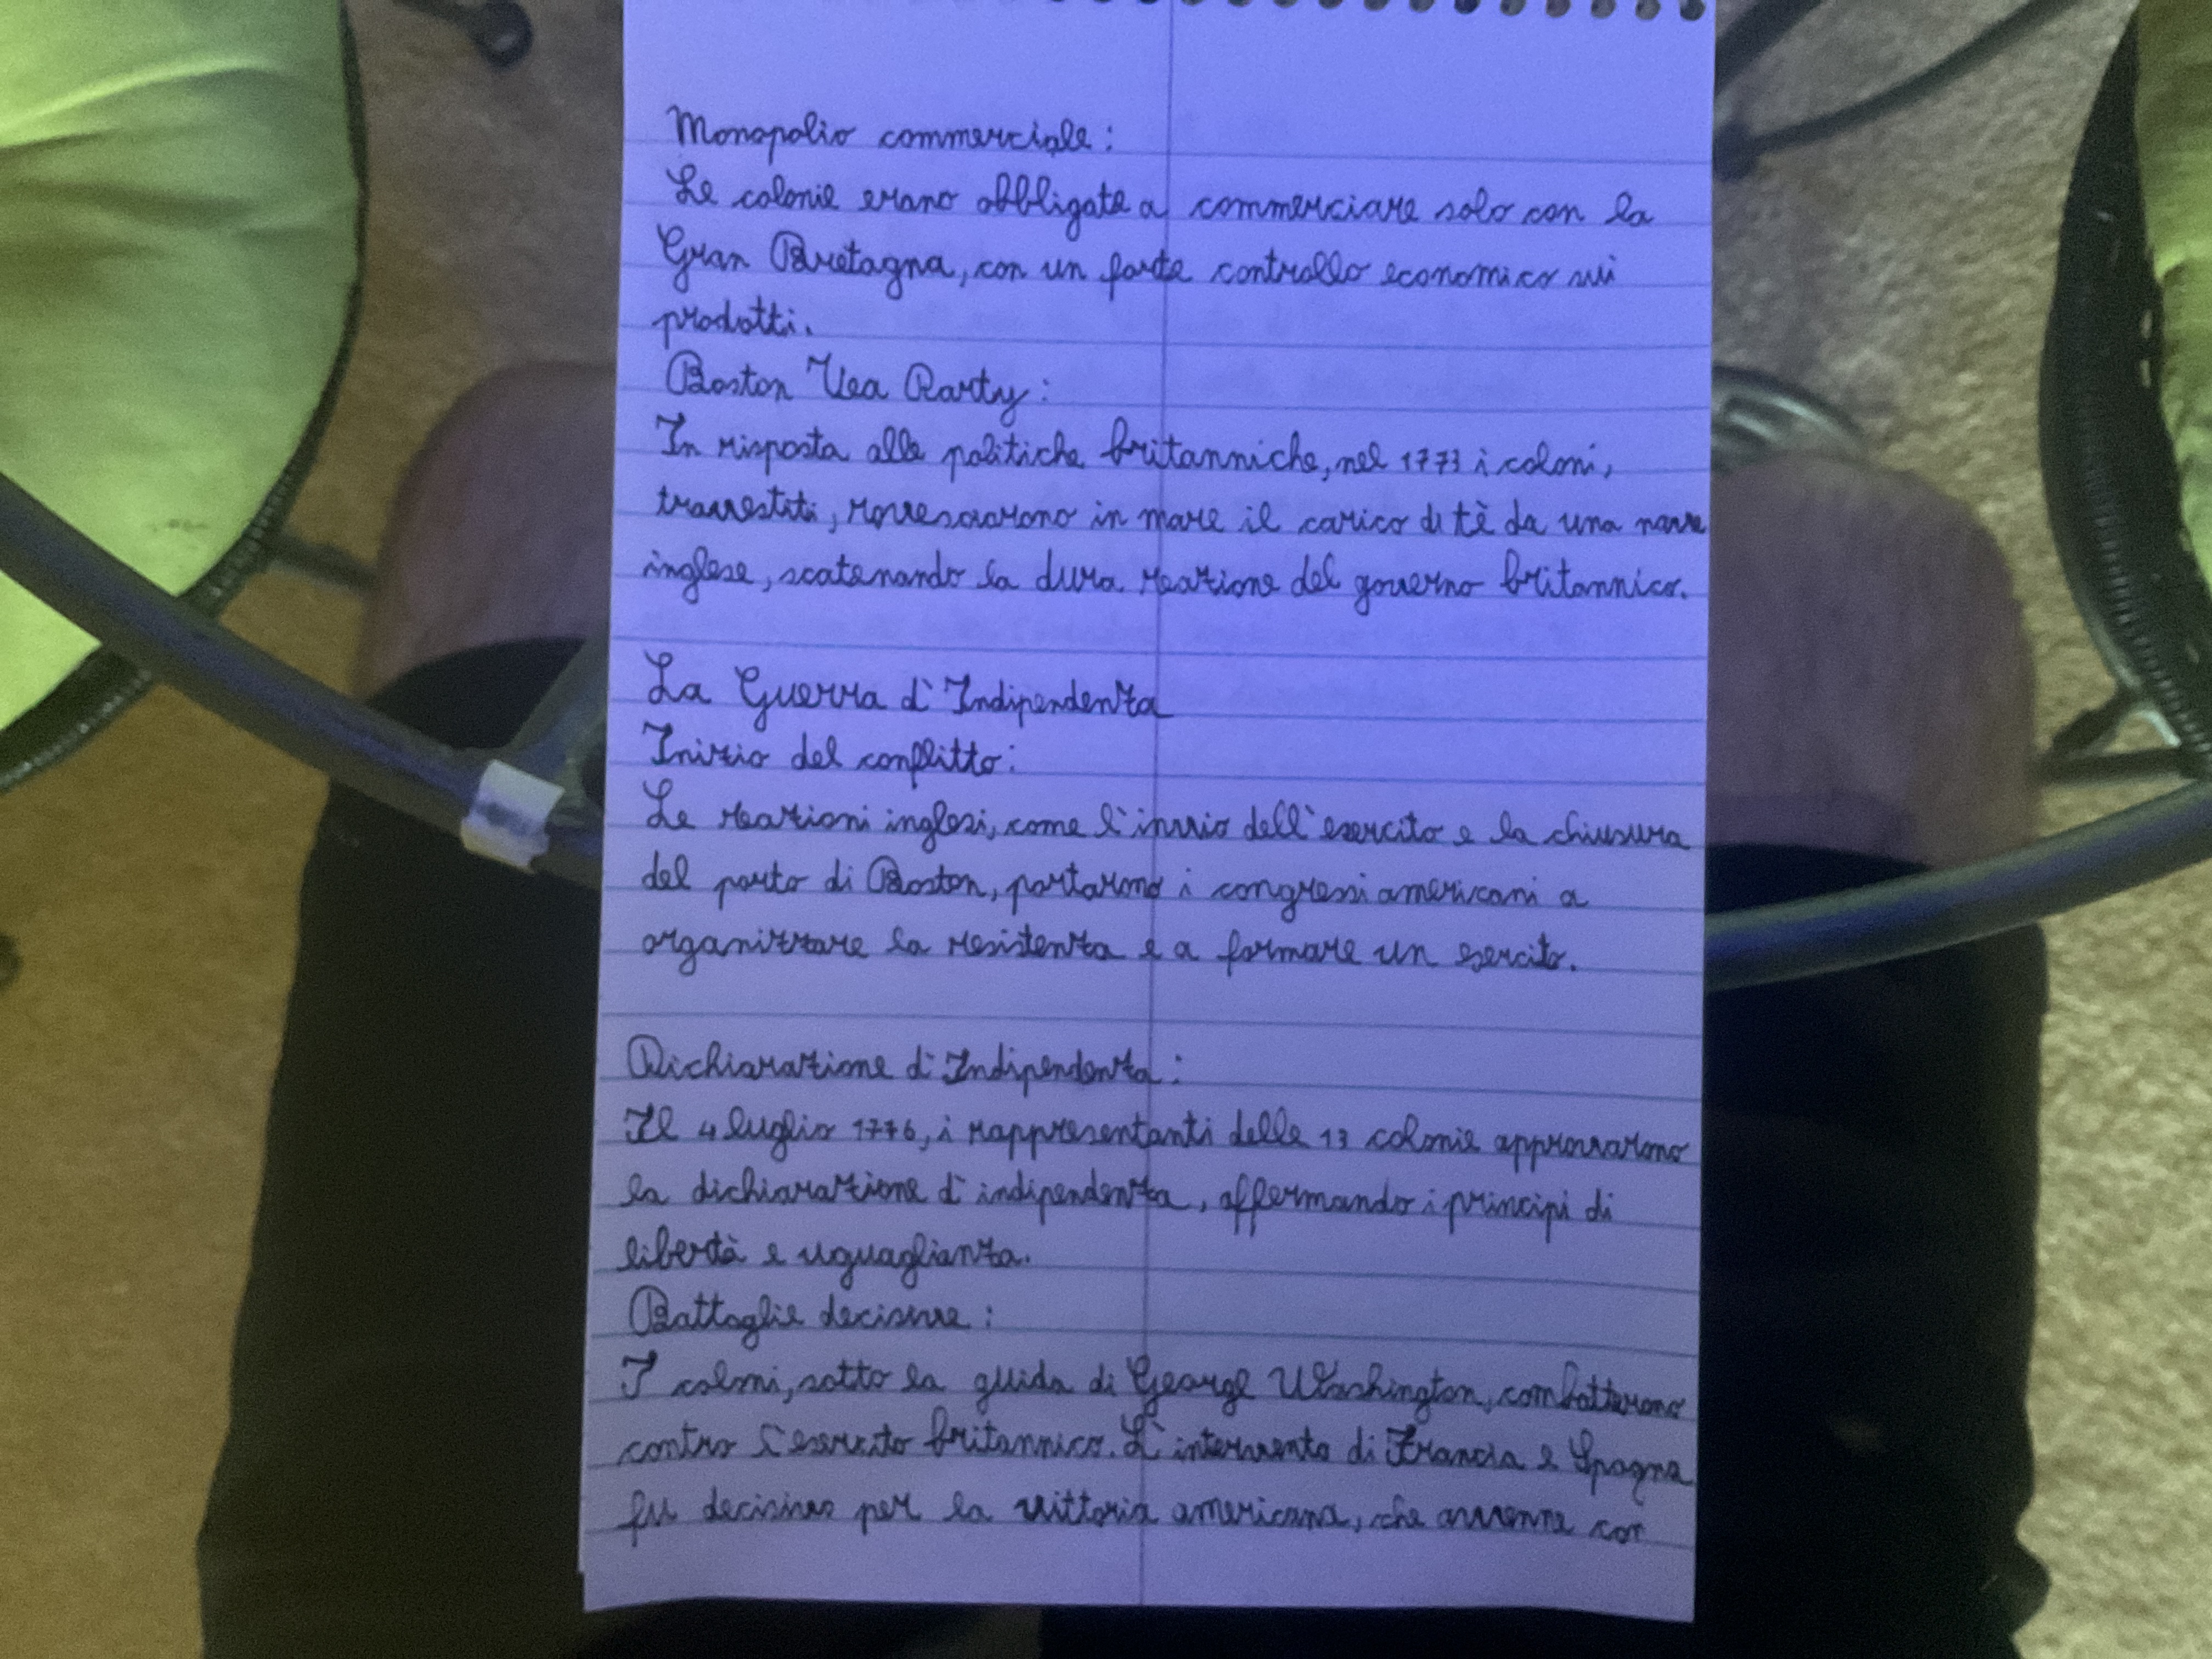 Monopolio commerciale:
Le colonie erano obbligate a commerciare solo con la
Gran Bretagna, con un forte controllo economico sui
prodotti.
Boston Tea Party:
In risposta alle politiche britanniche, nel 1773 i coloni,
travestiti, rovesciarono in mare il carico di tè da una nave
inglese, scatenando la dura reazione del governo britannico.
La Guerra d'Indipendenza
Inizio del conflitto:
Le reazioni inglesi, come l'invio dell'esercito e la chiusura
del porto di Boston, portarono i congressi americani a
organizzare la resistenza e a formare un esercito.
Dichiarazione d'Indipendenza:
Il 4 luglio 1776, i rappresentanti delle 13 colonie approvarono
la dichiarazione d'indipendenza, affermando i principi di
libertà e uguaglianza.
Battaglie decisive:
I coloni, sotto la guida di George Washington, combatterono
contro l'esercito britannico. L'intervento di Francia e Spagna
fu decisivo per la vittoria americana, che avvenne con